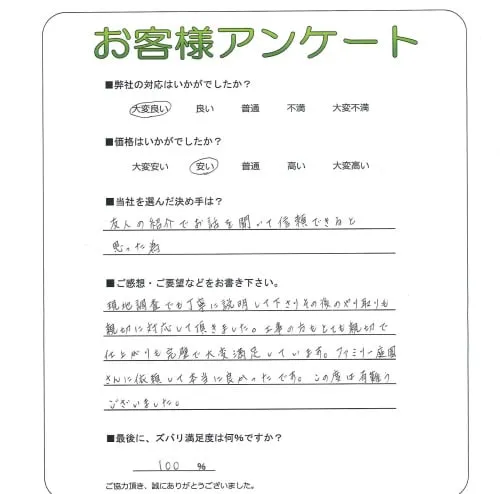 お客様アンケート
■弊社の対応はいかがでしたか？
大変良い 良い 普通 不満 大変不満
■価格はいかがでしたか？
大変安い 安い 普通 高い 大変高い
■当社を選んだ決め手は？
友人の紹介でお話を聞いて信頼できると
思った為
■ご感想・ご要望などをお書き下さい。
現地調査でも丁寧に説明して下さりその後のやり取りも
親切に対応して頂きました。工事の方もとても親切で
仕上がりも完璧で大変満足しています。ファミリー庭園
さんに依頼して本当に良かったです。この度は有難う
ございました。
■最後に、ズバリ満足度は何%ですか？
100 %
ご協力頂き、誠にありがとうございました。